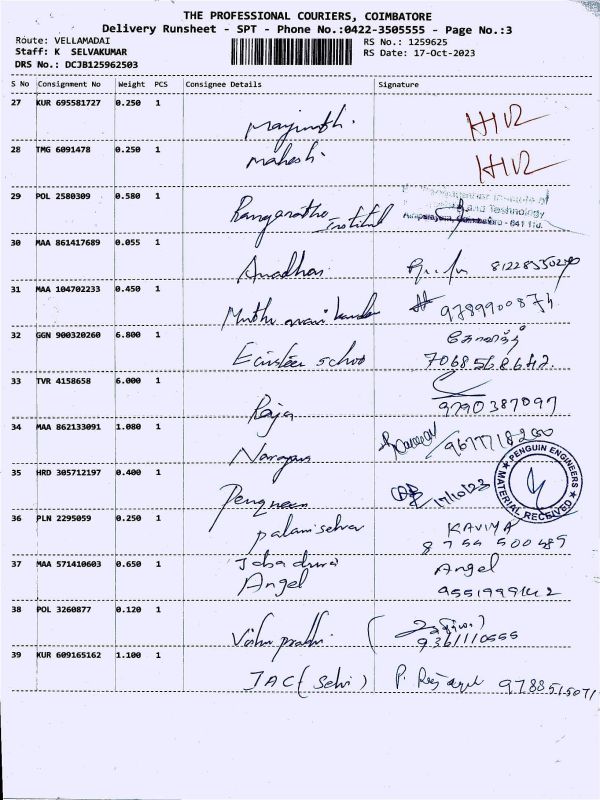 THE PROFESSIONAL COURIERS, COIMBATORE
Delivery Runsheet - SPT - Phone No.:0422-3505555 - Page No.:3
Route: VELLAMADAI
RS No.: 1259625
Staff: K SELVAKUMAR
RS Date: 17-Oct-2023
DRS No.: DCJB125962503
S No Consignment No Weight PCS Consignee Details Signature
27 KUR 695581727 0.250 1
28 TMG 6091478 0.250 1 Mahesh
29 POL 2580309 0.580 1 Institut
and Technology
30 MAA 861417689 0.055 1
31 MAA 104702233 0.450 1 97899008
32 GGN 900320260 6.800 1 7068568642
33 TVR 4158658 6.000 1 Raja 9790387097
34 MAA 862133091 1.080 1 Narayan
35 HRD 305712197 0.400 1 17/10/23 PENGUIN ENGINEERS MATERIAL RECEIVED
36 PLN 2295059 0.250 1 palaniselvan KAVIYA
8754500489
37 MAA 571410603 0.650 1 Angel Angel
9551999142
38 POL 3260877 0.120 1 9361110555
39 KUR 609165162 1.100 1 JAC (Selvi) P. 9788515071